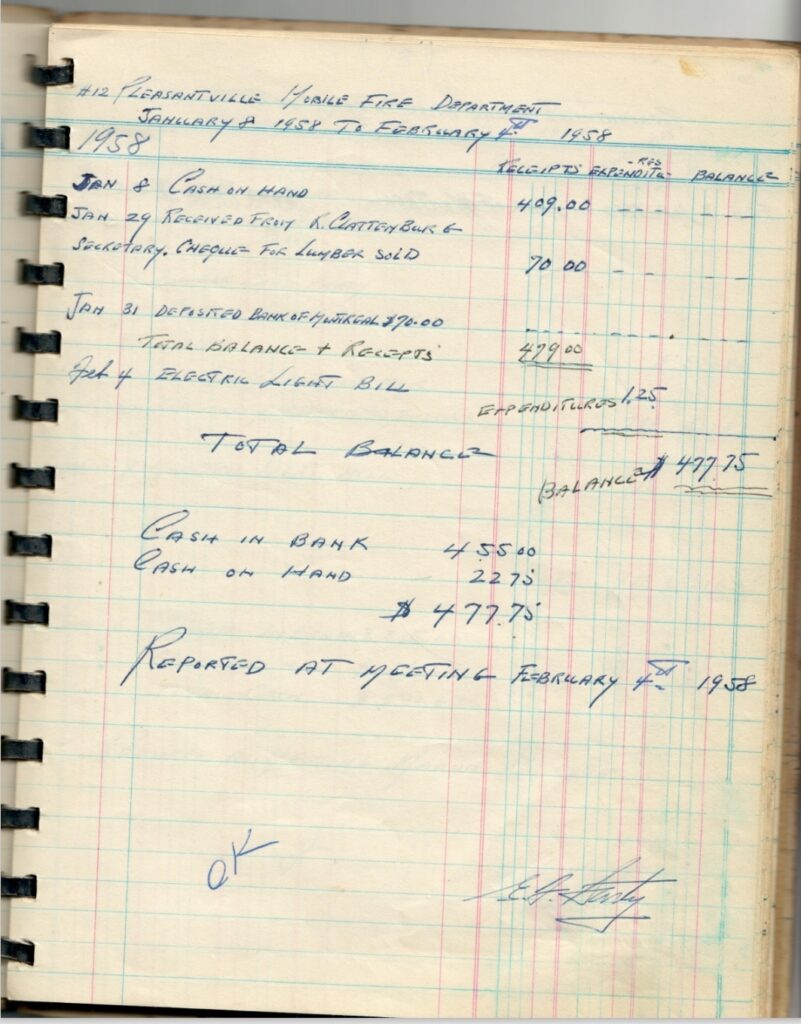 #12 PLEASANTVILLE MOBILE FIRE DEPARTMENT
JANUARY 8 1958 TO FEBRUARY 4th 1958
1958
RECEIPTS EXPENDITURES BALANCE
JAN 8 CASH ON HAND 409.00 --- ---
JAN 29 RECEIVED FROM K. CLATTENBURG
SECRETARY. CHEQUE FOR LUMBER SOLD 70 00 --- ---
JAN 31 DEPOSITED BANK OF MONTREAL $70.00
TOTAL BALANCE + RECEPTS 479 00
Feb 4 ELECTRIC LIGHT BILL
EXPENDITURES 1.25
TOTAL BALANCE
BALANCE $ 477.75
CASH IN BANK 455 00
CASH ON HAND 22 75
$ 477.75
REPORTED AT MEETING FEBRUARY 4th 1958
OK